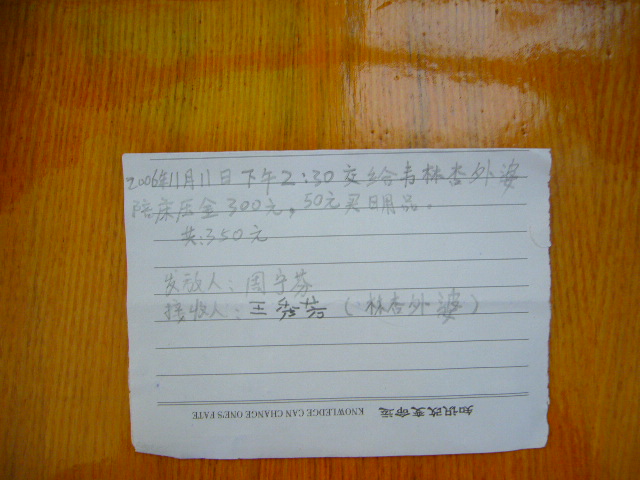 2006年11月11日下午2:30交给青林杏外婆
陪床压金300元，50元买日用品。
共:350元
发放人：周守芬
接收人：王（林杏外婆）
知识改变命运 KNOWLEDGE CAN CHANGE ONE'S FATE